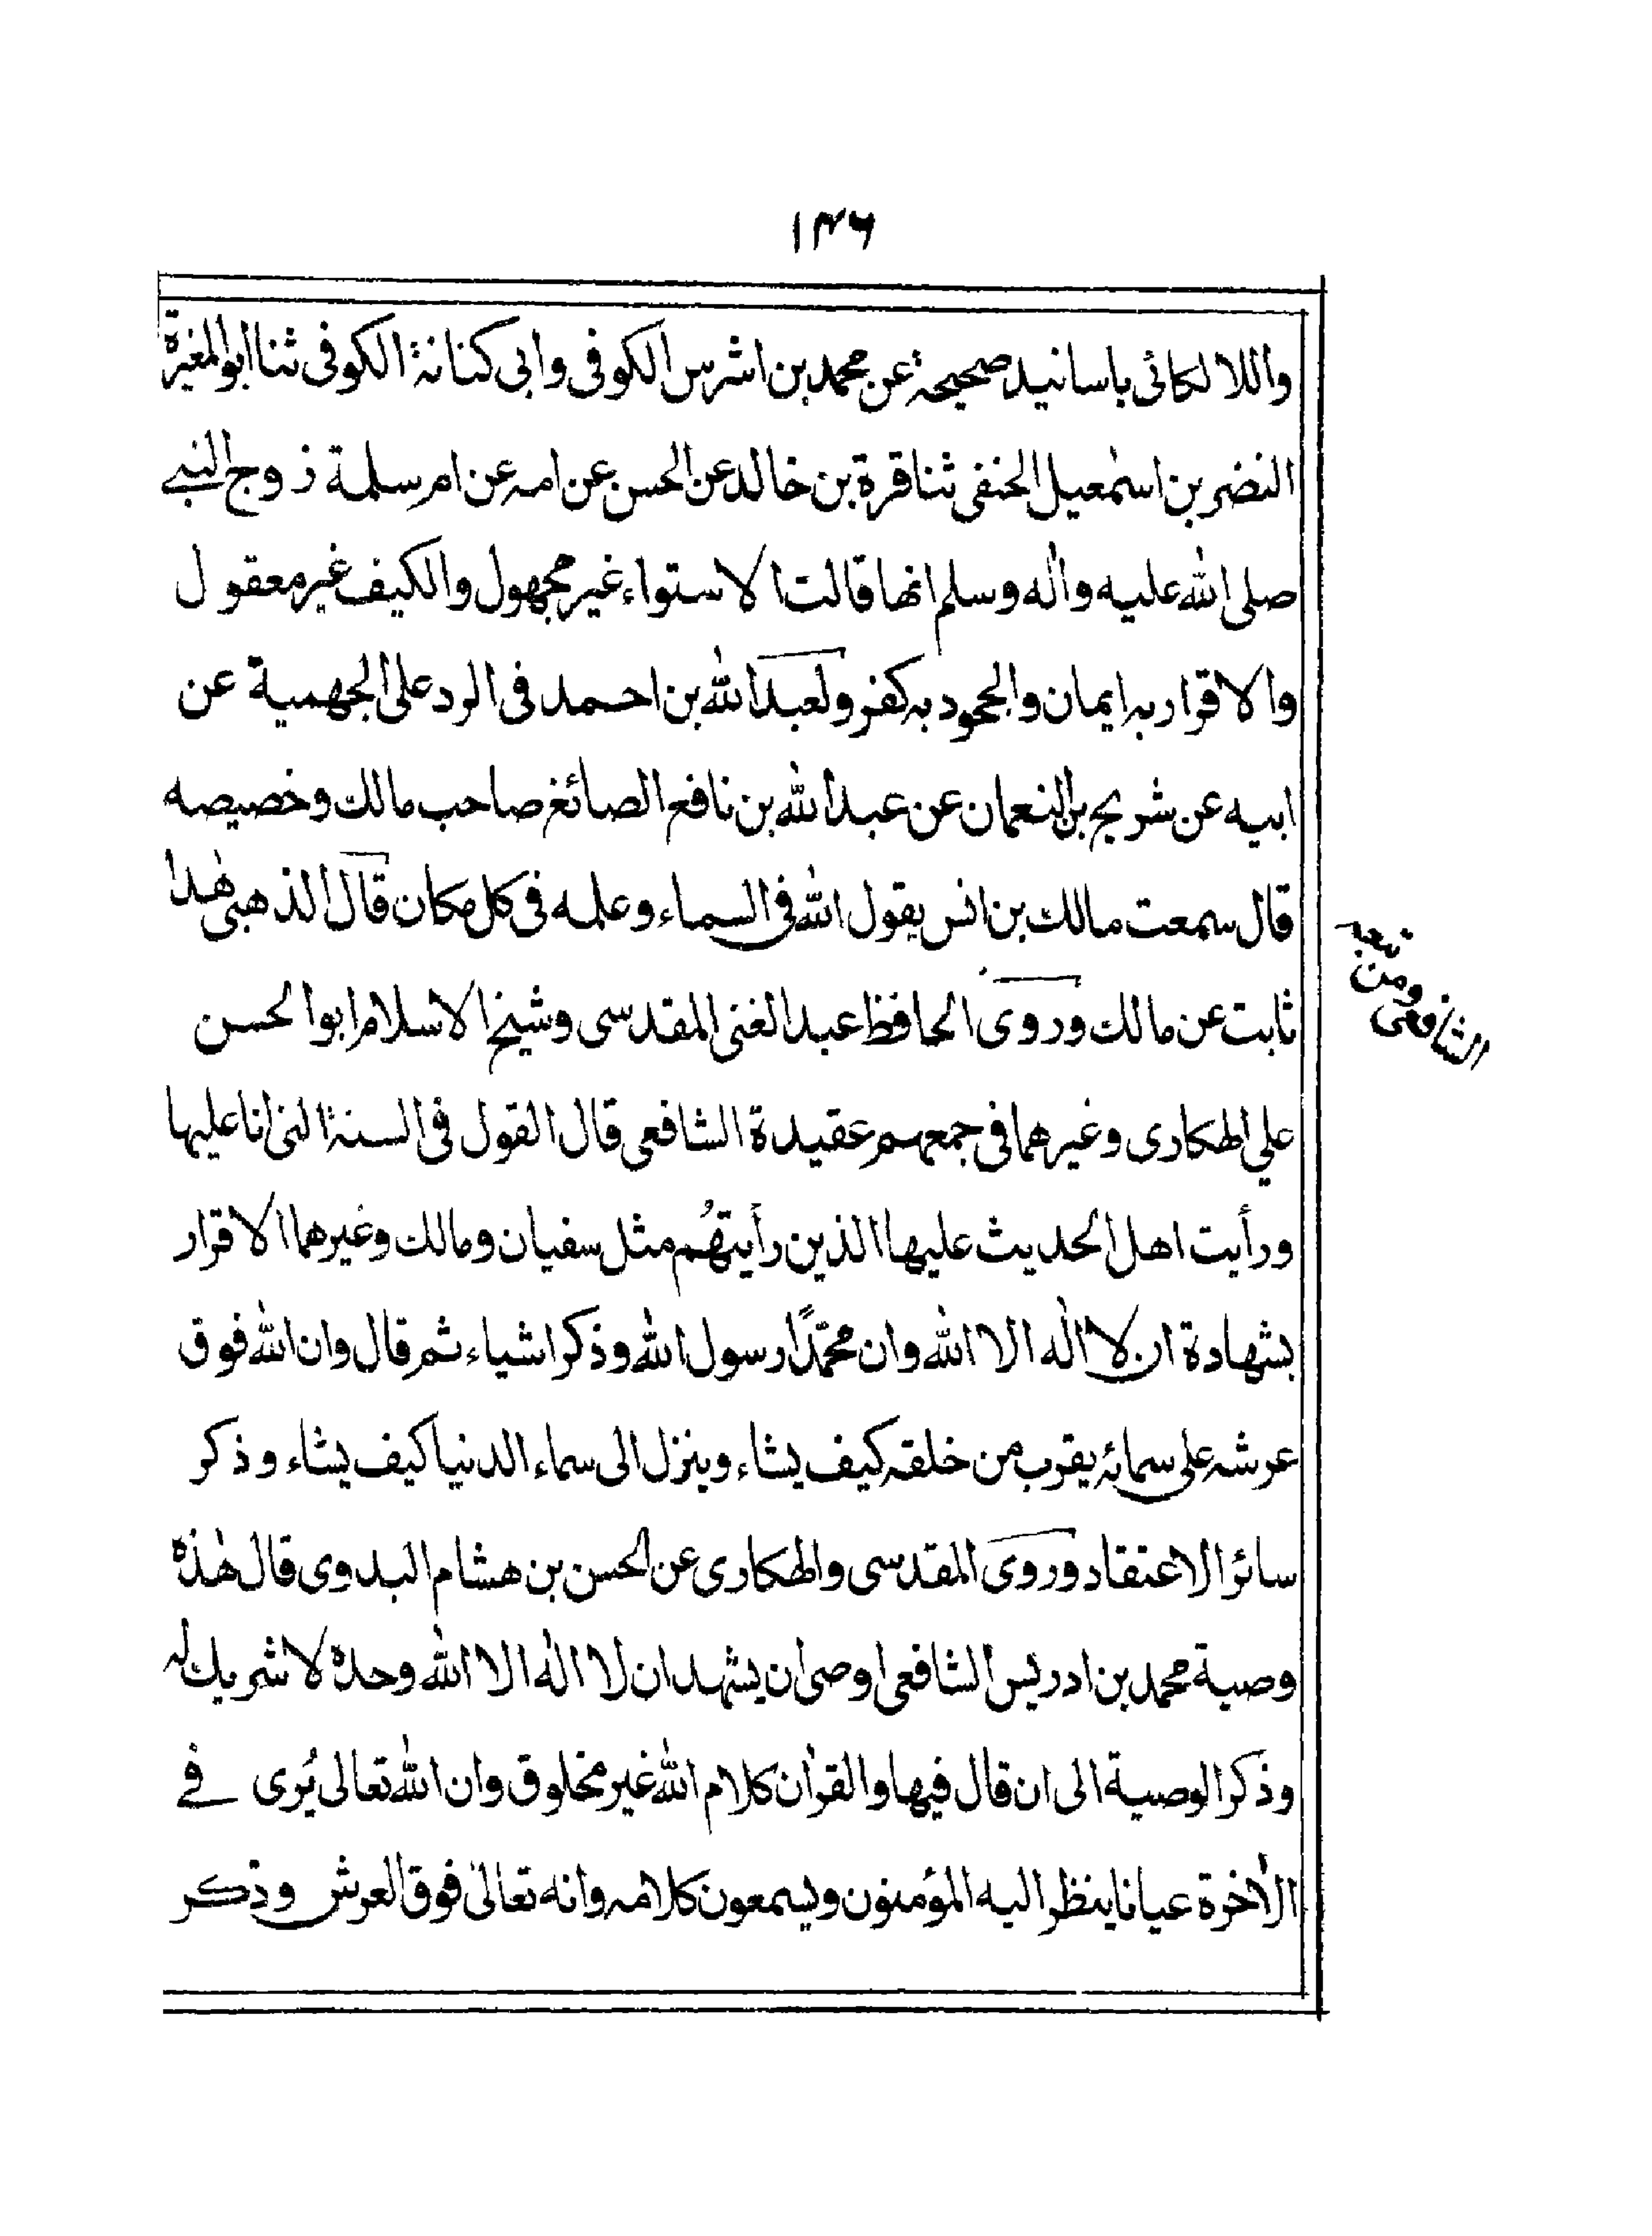 ۱۴۶
واللالكائى باسانيد صحيحة عن محمد بن اشرس الكوفى وابى كنانة الكوفى ثنا ابو المغيرة
النضر بن اسمٰعيل الحنفى ثنا قرة بن خالد عن الحسن عن امه عن ام سلمة زوج النبے
صلى الله عليه واٰله وسلم انها قالت الاستواء غير مجهول والكيف غير معقول
والاقرار به ايمان والجحود به كفر ولعبد الله بن احمد فى الرد على الجهمية عن
ابيه عن شريح بن النعمان عن عبد الله بن نافع الصائغ صاحب مالك وخصيصه
قال سمعت مالك بن انس يقول الله فى السماء وعلمه فى كل مكان قال الذهبى هٰذا
ثابت عن مالك وروى الحافظ عبد الغنى المقدسى وشيخ الاسلام ابو الحسن
علي الهكارى وغيرهما فى جمعهم عقيدة الشافعى قال القول فى السنة التى انا عليها
ورأيت اهل الحديث عليها الذين رأيتهُم مثل سفيان ومالك وغيرهما الاقرار
بشهادة ان لا اله الا الله وان محمّدًا رسول الله وذكر اشياء ثم قال وان الله فوق
عرشه على سمائه يقرب من خلقه كيف يشاء وينزل الى سماء الدنيا كيف يشاء وذكر
سائر الاعتقاد وروى المقدسى والهكارى عن الحسن بن هشام البدوى قال هٰذه
وصية محمد بن ادريس الشافعى اوصى ان يشهد ان لا اله الا الله وحده لا شريك له
وذكر الوصية الى ان قال فيها والقراٰن كلام الله غير مخلوق وان الله تعالى يُرى فے
الاٰخرة عيانا ينظر اليه المؤمنون ويسمعون كلامه وانه تعالىٰ فوق العرش وذكر
ومن
الشافعى